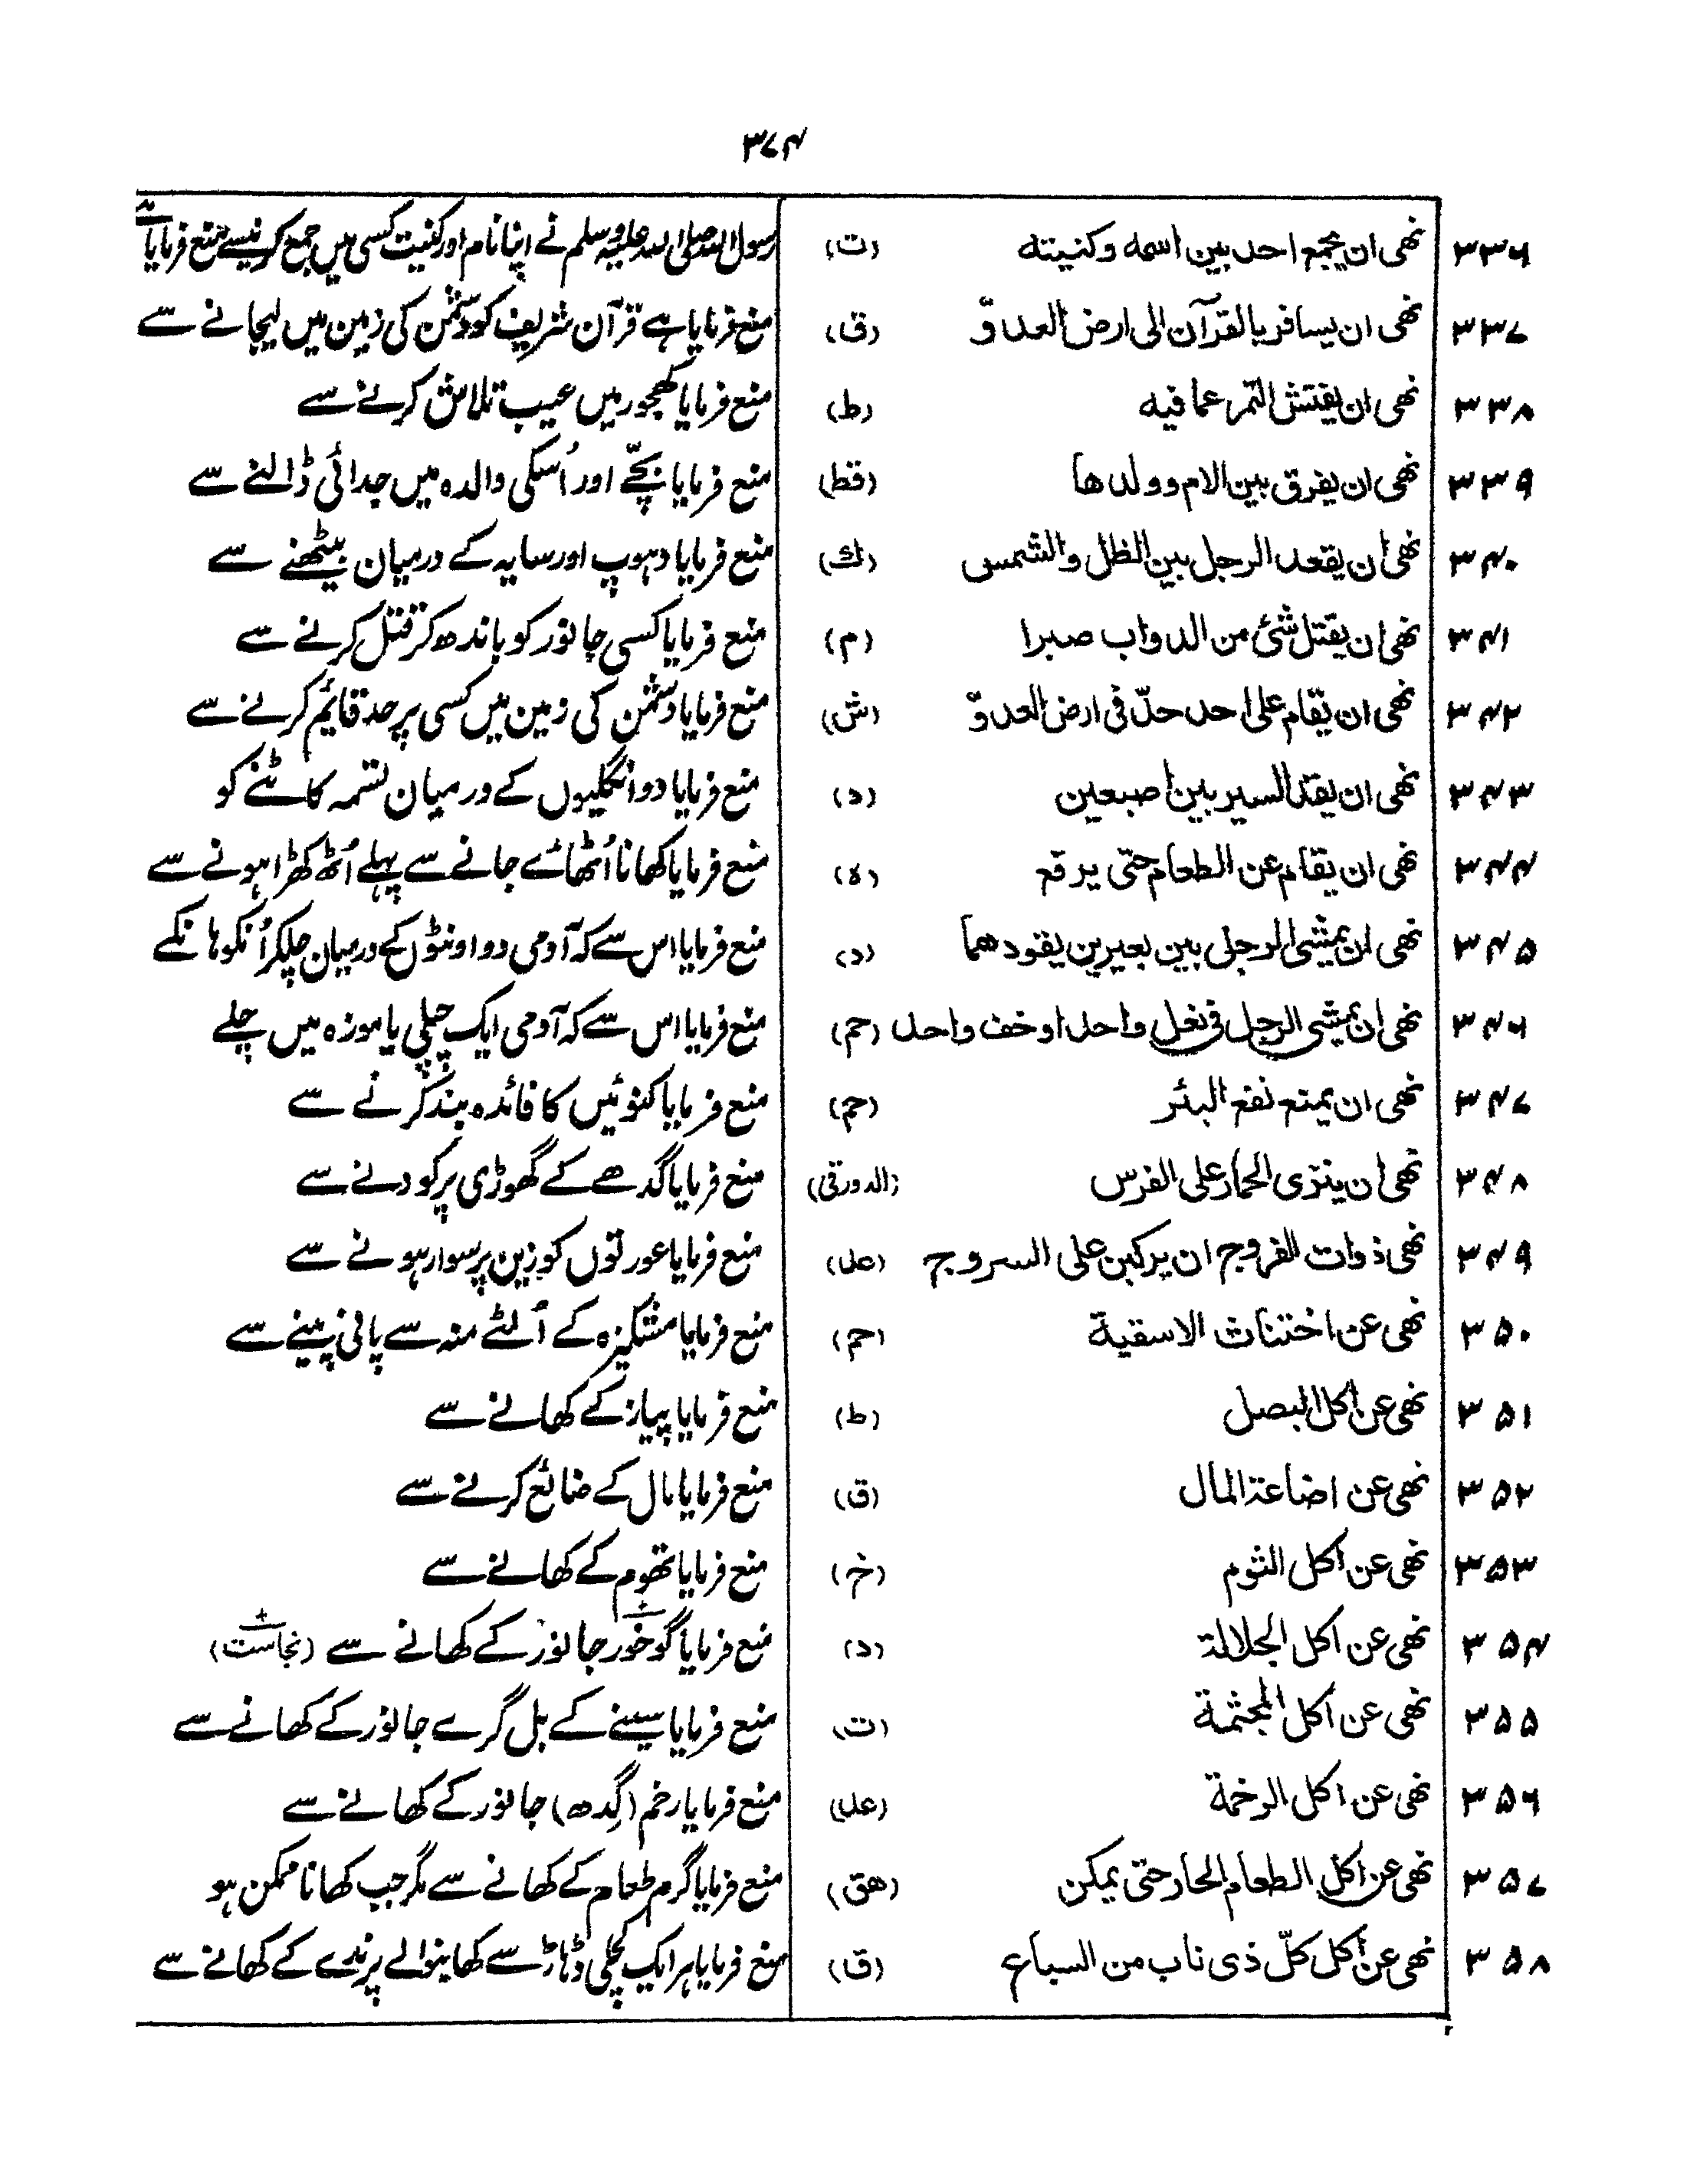 ۳۷۴
۳۳۶ نھی ان یجمع احد بین اسمہ وکنیتہ (ت) رسول اللہ صلی اللہ علیہ وسلم نے اپنا نام اور کنیت کسی میں جمع کرنیسے منع فرمایا ہے
۳۳۷ نھی ان یسافر بالقرآن الی ارض العدوّ (ق) منع فرمایا ہے قرآن شریف کو دشمن کی زمین میں لیجانے سے
۳۳۸ نھی ان یفتش التمر عما فیہ (ط) منع فرمایا کھجور میں عیب تلاش کرنے سے
۳۳۹ نھی ان یفرق بین الام وولدھا (قط) منع فرمایا بچّے اور اُسکی والدہ میں جدائی ڈالنے سے
۳۴۰ نھی ان یقعد الرجل بین الظل والشمس (ك) منع فرمایا دہوپ اور سایہ کے درمیان بیٹھنے سے
۳۴۱ نھی ان یقتل شئ من الدواب صبرا (م) منع فرمایا کسی جانور کو باندھ کر قتل کرنے سے
۳۴۲ نھی ان یقام علی احد حدّ فی ارض العدوّ (ش) منع فرمایا دشمن کی زمین میں کسی پر حد قایٔم کرنے سے
۳۴۳ نھی ان یقد السیر بین اصبعین (د) منع فرمایا دو انگلیوں کے درمیان تسمہ کاٹنے کو
۳۴۴ نھی ان یقام عن الطعام حتی یرفع (ہ) منع فرمایا کھانا اُٹھائے جانے سے پہلے اُٹھ کھڑا ہونے سے
۳۴۵ نھی ان یمشی الرجل بین بعیرین یقودھما (د) منع فرمایا اس سے کہ آدمی دو اونٹوں کے درمیان چلکر اُنکو ہانکے
۳۴۶ نھی ان یمشی الرجل فی نعل واحد او خف واحد (حم) منع فرمایا اس سے کہ آدمی ایک چپلی یا موزہ میں چلے
۳۴۷ نھی ان یمنع نفع البئر (حم) منع فرمایا کنوئیں کا فائدہ بند کرنے سے
۳۴۸ نھی ان ینزی الحمار علی الفرس (الدورقی) منع فرمایا گدھے کے گھوڑی پر کودنے سے
۳۴۹ نھی ذوات الفروج ان یرکبن علی السروج (عد) منع فرمایا عورتوں کو زین پر سوار ہونے سے
۳۵۰ نھی عن اختناث الاسقیة (حم) منع فرمایا مشکیزہ کے اُلٹے منہ سے پانی پینے سے
۳۵۱ نھی عن اکل البصل (ط) منع فرمایا پیاز کے کھانے سے
۳۵۲ نھی عن اضاعة المال (ق) منع فرمایا مال کے ضائع کرنے سے
۳۵۳ نھی عن اکل الثوم (خ) منع فرمایا تھوم کے کھانے سے
۳۵۴ نھی عن اکل الجلالة (د) منع فرمایا گو خور جانور کے کھانے سے (نجاست)
۳۵۵ نھی عن اکل المجثمة (ت) منع فرمایا سینے کے بل گرے جانور کے کھانے سے
۳۵۶ نھی عن اکل الرخمة (عد) منع فرمایا رخم (گِدھ) جانور کے کھانے سے
۳۵۷ نھی عن اکل الطعام الحار حتی یمکن (ھق) منع فرمایا گرم طعام کے کھانے سے مگر جب کھانا ممکن ہو
۳۵۸ نھی عن اکل کلّ ذی ناب من السباع (ق) منع فرمایا ہر ایک کچلی ڈہاڑ سے کھاینوالے پرندے کے کھانے سے